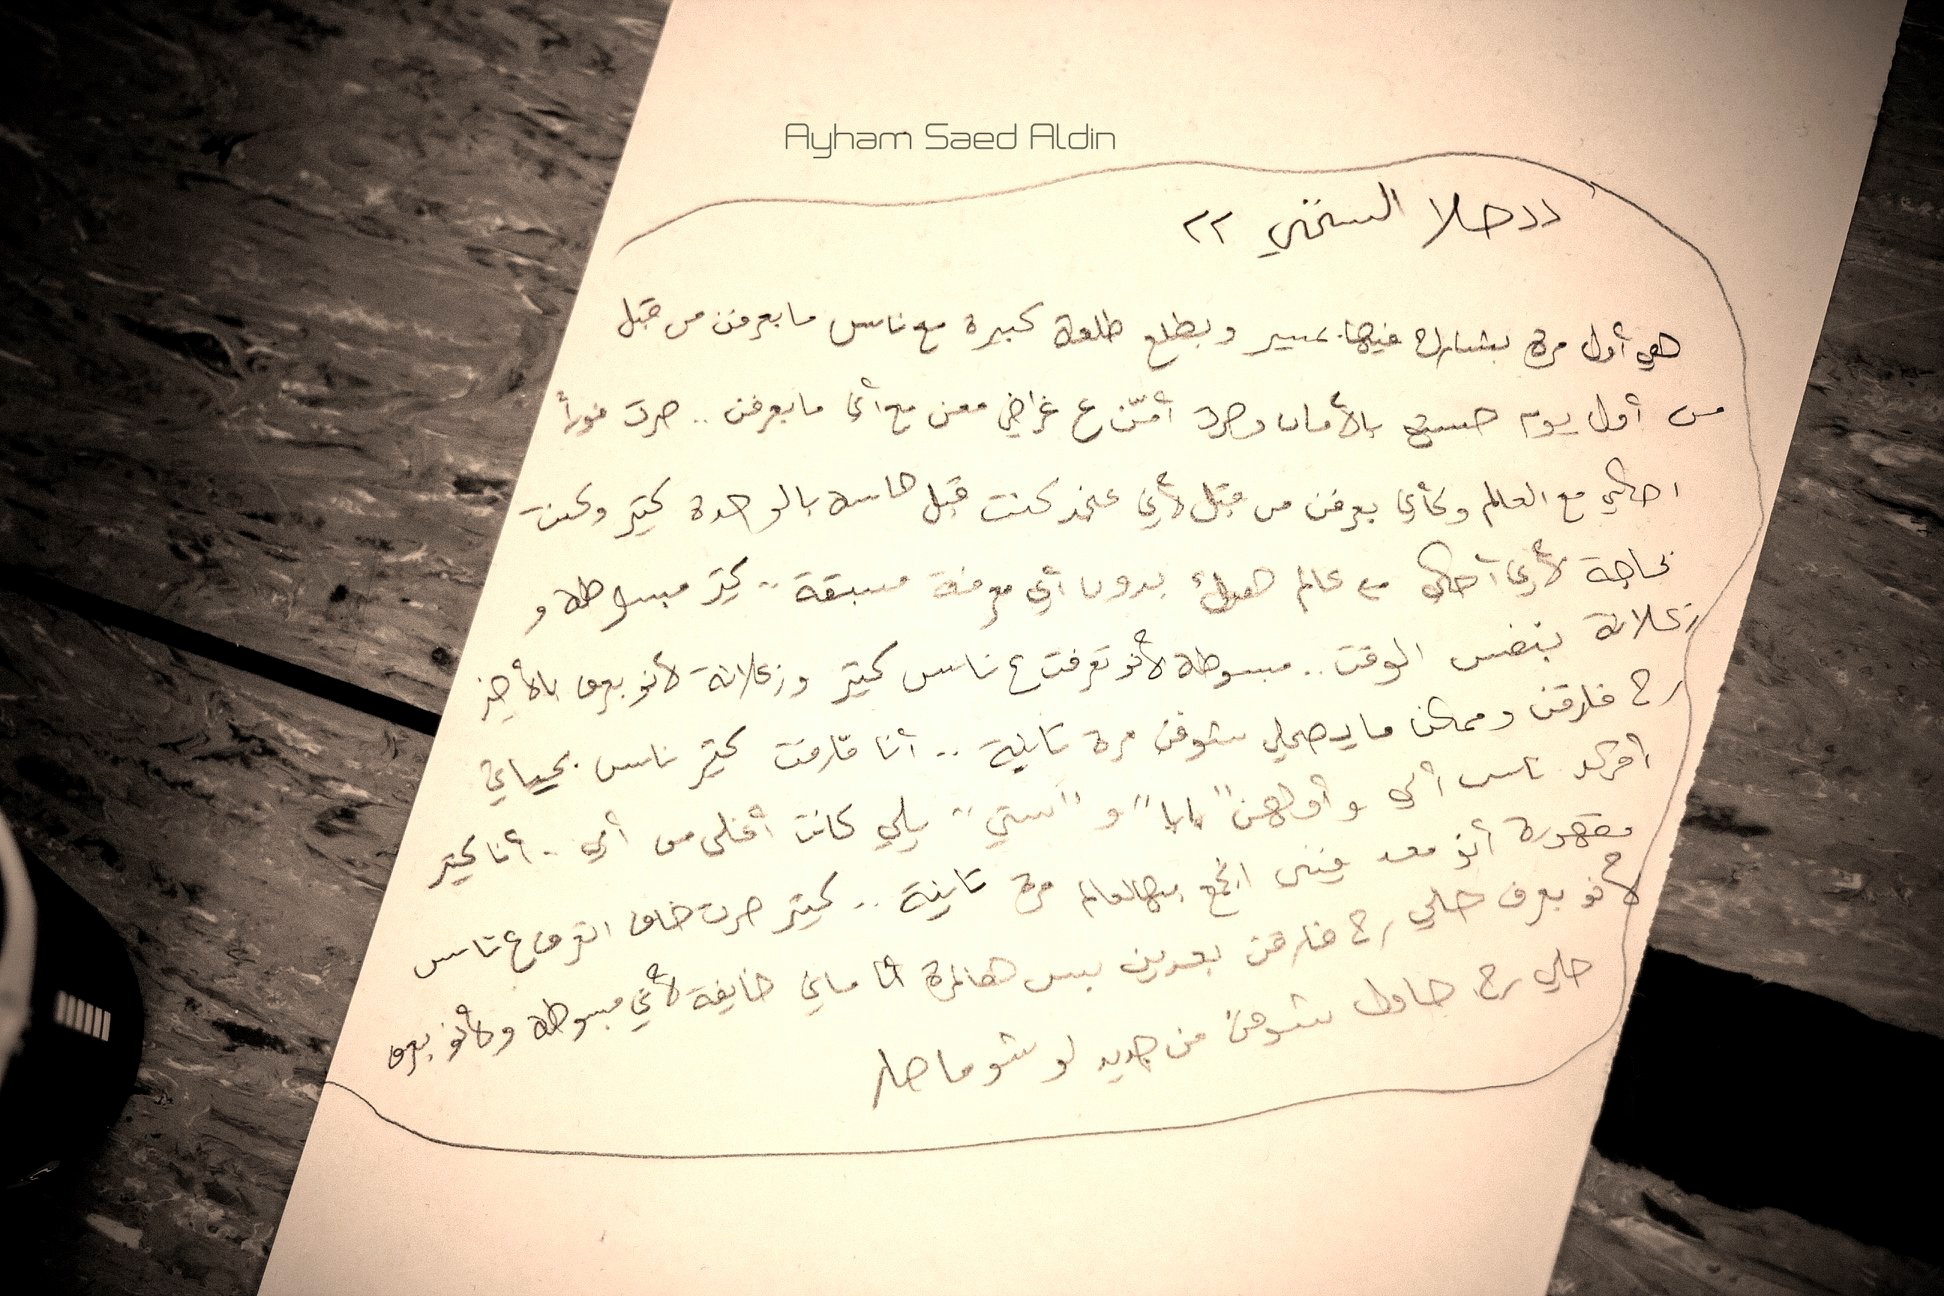 Ayham Saed Aldin
"حلا السخني"
هي أول مرة بشارك فيها بمسير وبطلع طلعة كبيرة مع ناس ما بعرفن من قبل
من أول يوم حسيت بالأمان وصرت أمّن ع غراضي معن مع أني ما بعرفن .. صرت فوراً
احكي مع العالم وكأني بعرفن من قبل لأني عنجد كنت قبل حاسة بالوحدة كتير وكنت
بحاجة لأني أحكي مع عالم هيك بدون أي معرفة مسبقة .. كتير مبسوطة و
زعلانة بنفس الوقت .. مبسوطة لأنو تعرفت ع ناس كتير وزعلانة لأنو بعرف بالأخير
رح فارقن وممكن ما يصحلي شوفن مرة تانية .. أنا فارقت كتير ناس بحياتي
أقرب ناس ألي وأولهن "بابا" و "ستي" يلي كانت أغلى من أمي .. أنا كتير
مقهورة أنو معد فيني اجتمع بهالعالم مرة تانية .. كتير صرت خاف اتعرف ع ناس
لأنو بعرف حالي رح فارقن بعدين بس هالمرة أنا ماني خايفة لأني مبسوطة ولأنو بعرف
حالي رح حاول شوفن من جديد لو شو ما صار